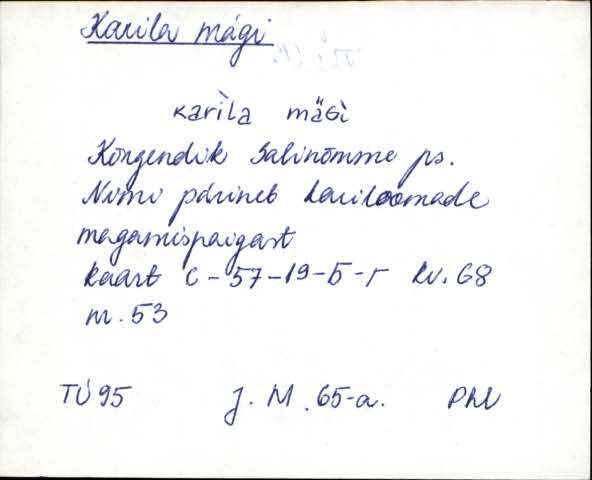 Karila mägi
karìla mäGì
Kõrgendik Salinõmme ps.
Nimi pärineb kariloomade
magamispaigast
kaart C-57-19-Б-г kv. 68
nr. 53
TÜ 95 J. M. 65-a. PhV